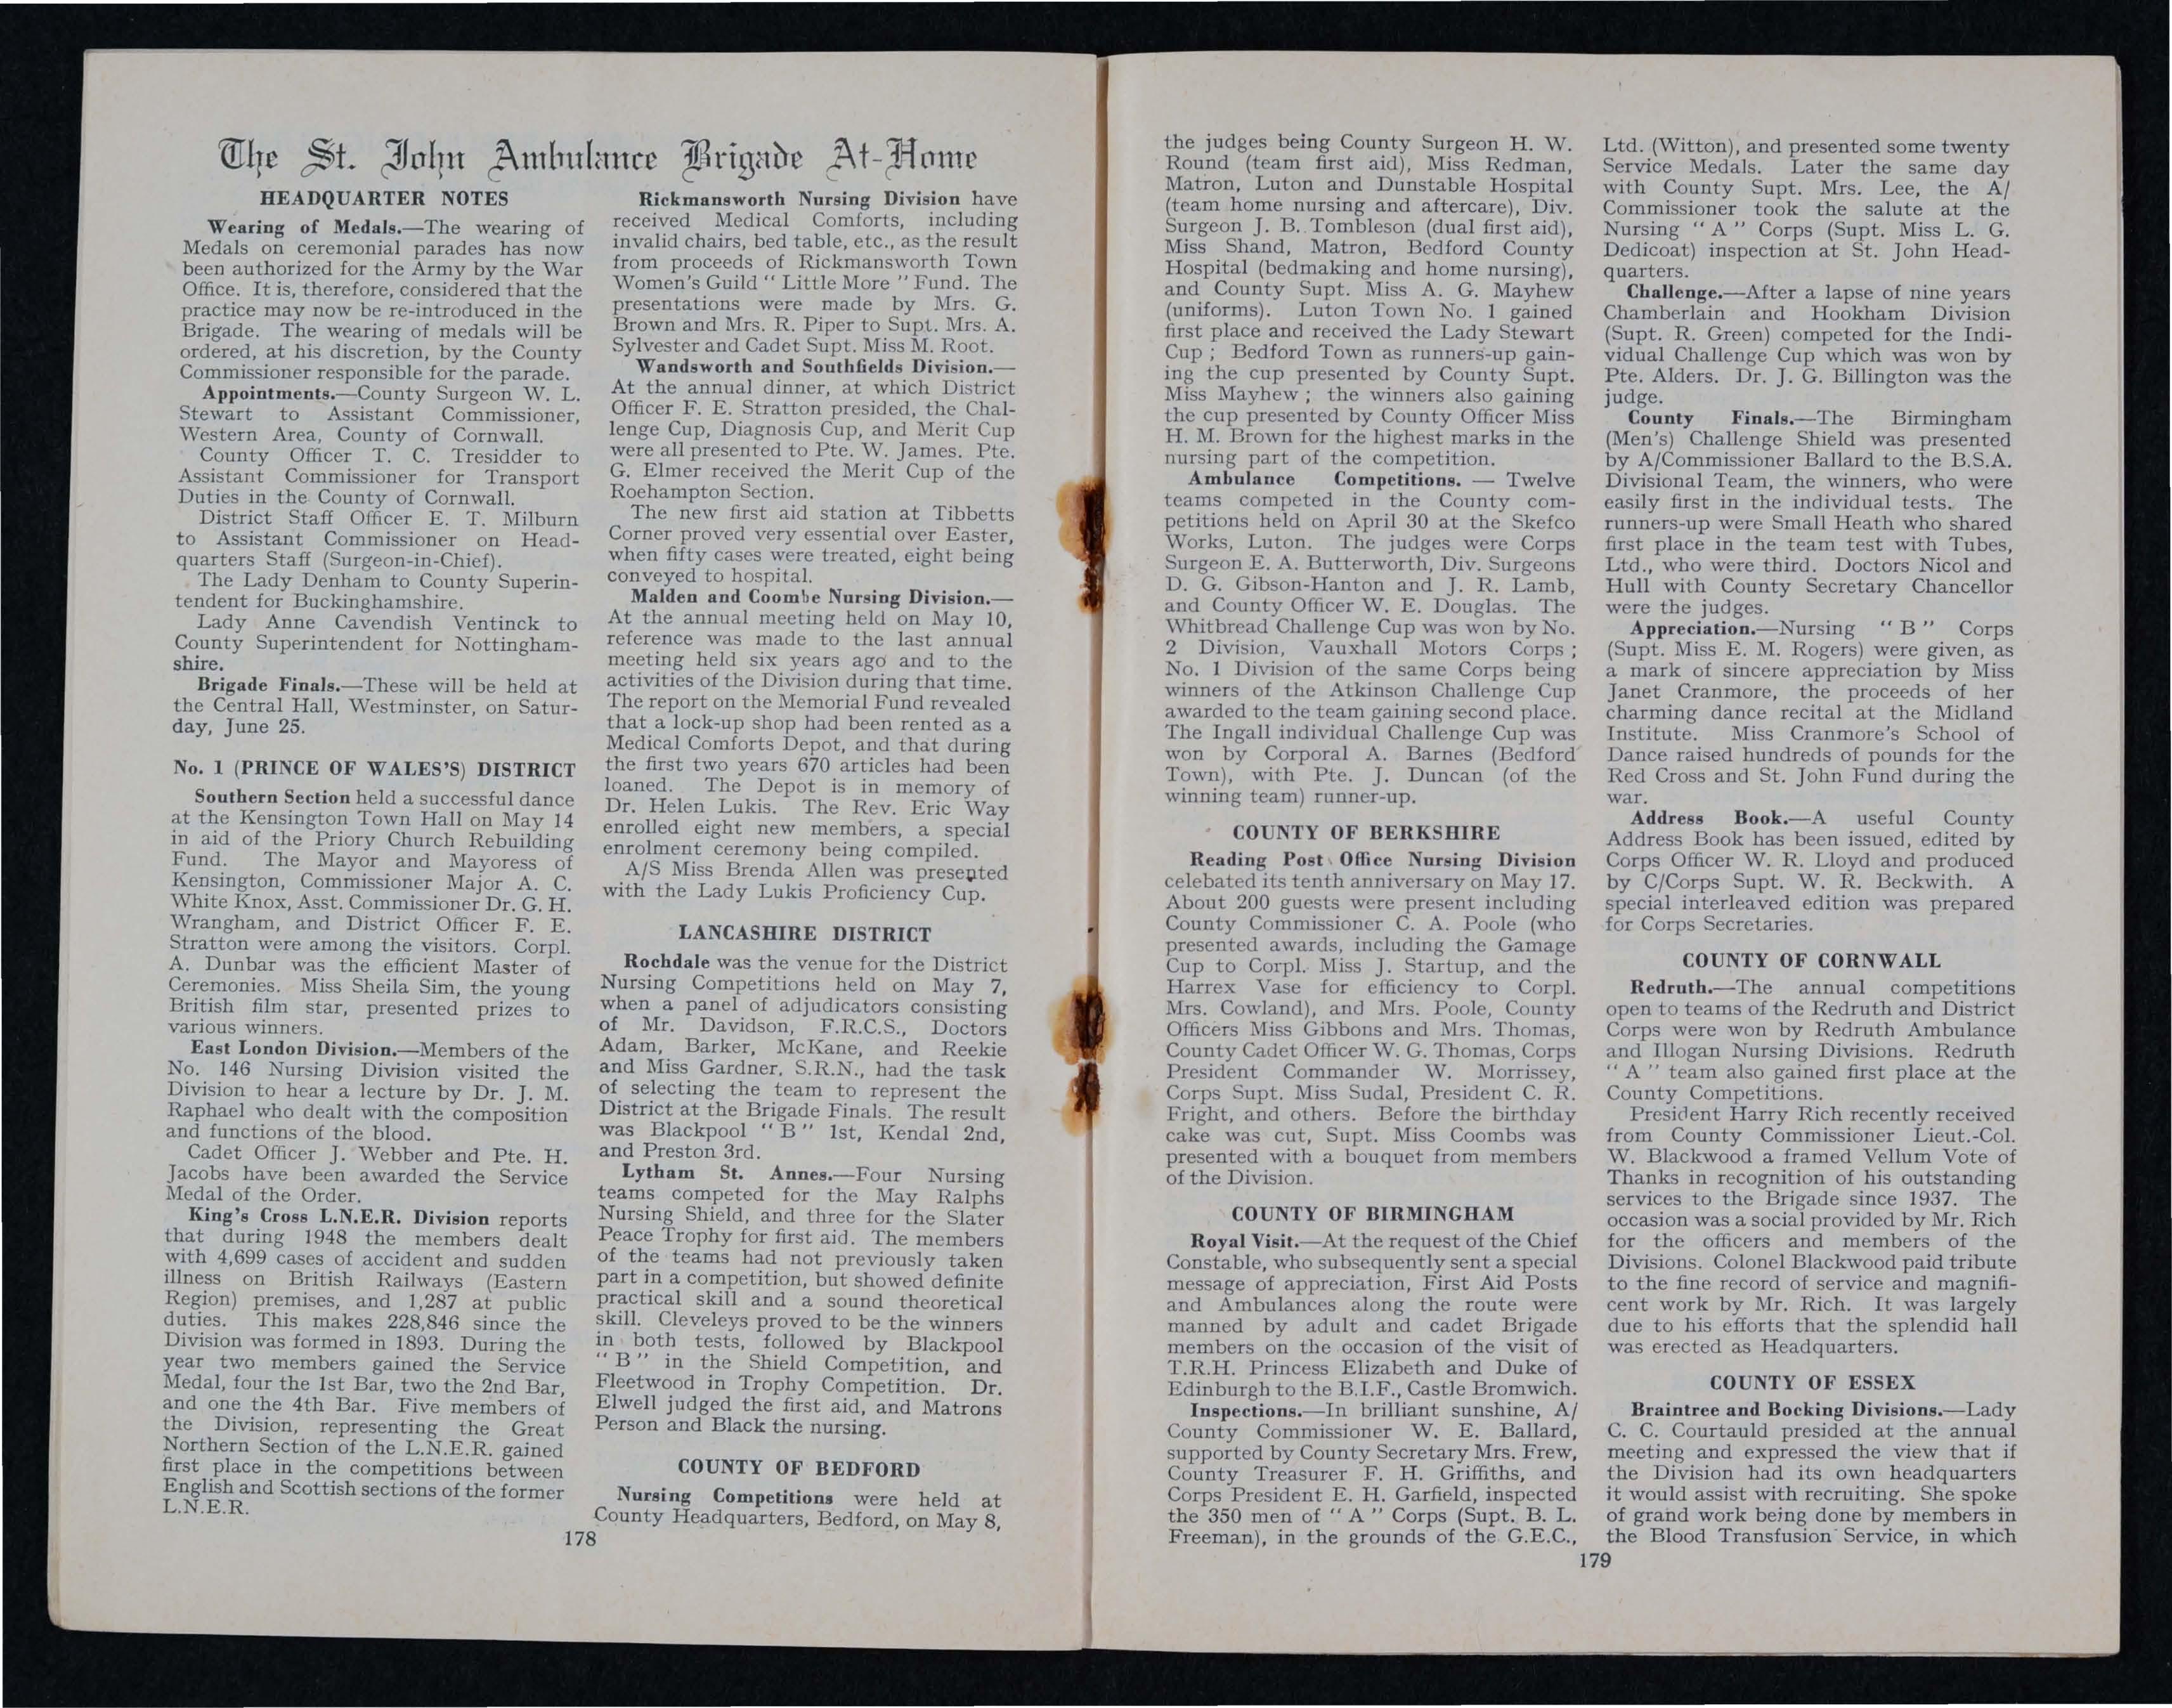 The St. John Ambulance Brigade At-Home
HEADQUARTER NOTES
Wearing of Medals.—The wearing of
Medals on ceremonial parades has now
been authorized for the Army by the War
Office. It is, therefore, considered that the
practice may now be re-introduced in the
Brigade. The wearing of medals will be
ordered, at his discretion, by the County
Commissioner responsible for the parade.
Appointments.—County Surgeon W. L.
Stewart to Assistant Commissioner,
Western Area, County of Cornwall.
County Officer T. C. Tresidder to
Assistant Commissioner for Transport
Duties in the County of Cornwall.
District Staff Officer E. T. Milburn
to Assistant Commissioner on Head-
quarters Staff (Surgeon-in-Chief).
The Lady Denham to County Superin-
tendent for Buckinghamshire.
Lady Anne Cavendish Ventinck to
County Superintendent for Nottingham-
shire.
Brigade Finals.—These will be held at
the Central Hall, Westminster, on Satur-
day, June 25.
No. 1 (PRINCE OF WALES'S) DISTRICT
Southern Section held a successful dance
at the Kensington Town Hall on May 14
in aid of the Priory Church Rebuilding
Fund. The Mayor and Mayoress of
Kensington, Commissioner Major A. C.
White Knox, Asst. Commissioner Dr. G. H.
Wrangham, and District Officer F. E.
Stratton were among the visitors. Corpl.
A. Dunbar was the efficient Master of
Ceremonies. Miss Sheila Sim, the young
British film star, presented prizes to
various winners.
East London Division.—Members of the
No. 146 Nursing Division visited the
Division to hear a lecture by Dr. J. M.
Raphael who dealt with the composition
and functions of the blood.
Cadet Officer J. Webber and Pte. H.
Jacobs have been awarded the Service
Medal of the Order.
King's Cross L.N.E.R. Division reports
that during 1948 the members dealt
with 4,699 cases of accident and sudden
illness on British Railways (Eastern
Region) premises, and 1,287 at public
duties. This makes 228,846 since the
Division was formed in 1893. During the
year two members gained the Service
Medal, four the 1st Bar, two the 2nd Bar,
and one the 4th Bar. Five members of
the Division, representing the Great
Northern Section of the L.N.E.R. gained
first place in the competitions between
English and Scottish sections of the former
L.N.E.R.
Rickmansworth Nursing Division have
received Medical Comforts, including
invalid chairs, bed table, etc., as the result
from proceeds of Rickmansworth Town
Women's Guild "Little More" Fund. The
presentations were made by Mrs. G.
Brown and Mrs. R. Piper to Supt. Mrs. A.
Sylvester and Cadet Supt. Miss M. Root.
Wandsworth and Southfields Division.—
At the annual dinner, at which District
Officer F. E. Stratton presided, the Chal-
lenge Cup, Diagnosis Cup, and Merit Cup
were all presented to Pte. W. James. Pte.
G. Elmer received the Merit Cup of the
Roehampton Section.
The new first aid station at Tibbetts
Corner proved very essential over Easter,
when fifty cases were treated, eight being
conveyed to hospital.
Malden and Coombe Nursing Division.—
At the annual meeting held on May 10,
reference was made to the last annual
meeting held six years ago and to the
activities of the Division during that time.
The report on the Memorial Fund revealed
that a lock-up shop had been rented as a
Medical Comforts Depot, and that during
the first two years 670 articles had been
loaned. The Depot is in memory of
Dr. Helen Lukis. The Rev. Eric Way
enrolled eight new members, a special
enrolment ceremony being compiled.
A/S Miss Brenda Allen was presented
with the Lady Lukis Proficiency Cup.
LANCASHIRE DISTRICT
Rochdale was the venue for the District
Nursing Competitions held on May 7,
when a panel of adjudicators consisting
of Mr. Davidson, F.R.C.S., Doctors
Adam, Barker, McKane, and Reekie
and Miss Gardner, S.R.N., had the task
of selecting the team to represent the
District at the Brigade Finals. The result
was Blackpool "B" 1st, Kendal 2nd,
and Preston 3rd.
Lytham St. Annes.—Four Nursing
teams competed for the May Ralphs
Nursing Shield, and three for the Slater
Peace Trophy for first aid. The members
of the teams had not previously taken
part in a competition, but showed definite
practical skill and a sound theoretical
skill. Cleveleys proved to be the winners
in both tests, followed by Blackpool
"B" in the Shield Competition, and
Fleetwood in Trophy Competition. Dr.
Elwell judged the first aid, and Matrons
Person and Black the nursing.
COUNTY OF BEDFORD
Nursing Competitions were held at
County Headquarters, Bedford, on May 8,
178
the judges being County Surgeon H. W.
Round (team first aid), Miss Redman,
Matron, Luton and Dunstable Hospital
(team home nursing and aftercare), Div.
Surgeon J. B. Tombleson (dual first aid),
Miss Shand, Matron, Bedford County
Hospital (bedmaking and home nursing),
and County Supt. Miss A. G. Mayhew
(uniforms). Luton Town No. 1 gained
first place and received the Lady Stewart
Cup ; Bedford Town as runners-up gain-
ing the cup presented by County Supt.
Miss Mayhew ; the winners also gaining
the cup presented by County Officer Miss
H. M. Brown for the highest marks in the
nursing part of the competition.
Ambulance Competitions. — Twelve
teams competed in the County com-
petitions held on April 30 at the Skefco
Works, Luton. The judges were Corps
Surgeon E. A. Butterworth, Div. Surgeons
D. G. Gibson-Hanton and J. R. Lamb,
and County Officer W. E. Douglas. The
Whitbread Challenge Cup was won by No.
2 Division, Vauxhall Motors Corps ;
No. 1 Division of the same Corps being
winners of the Atkinson Challenge Cup
awarded to the team gaining second place.
The Ingall individual Challenge Cup was
won by Corporal A. Barnes (Bedford
Town), with Pte. J. Duncan (of the
winning team) runner-up.
COUNTY OF BERKSHIRE
Reading Post Office Nursing Division
celebated its tenth anniversary on May 17.
About 200 guests were present including
County Commissioner C. A. Poole (who
presented awards, including the Gamage
Cup to Corpl. Miss J. Startup, and the
Harrex Vase for efficiency to Corpl.
Mrs. Cowland), and Mrs. Poole, County
Officers Miss Gibbons and Mrs. Thomas,
County Cadet Officer W. G. Thomas, Corps
President Commander W. Morrissey,
Corps Supt. Miss Sudal, President C. R.
Fright, and others. Before the birthday
cake was cut, Supt. Miss Coombs was
presented with a bouquet from members
of the Division.
COUNTY OF BIRMINGHAM
Royal Visit.—At the request of the Chief
Constable, who subsequently sent a special
message of appreciation, First Aid Posts
and Ambulances along the route were
manned by adult and cadet Brigade
members on the occasion of the visit of
T.R.H. Princess Elizabeth and Duke of
Edinburgh to the B.I.F., Castle Bromwich.
Inspections.—In brilliant sunshine, A/
County Commissioner W. E. Ballard,
supported by County Secretary Mrs. Frew,
County Treasurer F. H. Griffiths, and
Corps President E. H. Garfield, inspected
the 350 men of "A" Corps (Supt. B. L.
Freeman), in the grounds of the G.E.C.,
Ltd. (Witton), and presented some twenty
Service Medals. Later the same day
with County Supt. Mrs. Lee, the A/
Commissioner took the salute at the
Nursing "A" Corps (Supt. Miss L. G.
Dedicoat) inspection at St. John Head-
quarters.
Challenge.—After a lapse of nine years
Chamberlain and Hookham Division
(Supt. R. Green) competed for the Indi-
vidual Challenge Cup which was won by
Pte. Alders. Dr. J. G. Billington was the
judge.
County Finals.—The Birmingham
(Men's) Challenge Shield was presented
by A/Commissioner Ballard to the B.S.A.
Divisional Team, the winners, who were
easily first in the individual tests. The
runners-up were Small Heath who shared
first place in the team test with Tubes,
Ltd., who were third. Doctors Nicol and
Hull with County Secretary Chancellor
were the judges.
Appreciation.—Nursing "B" Corps
(Supt. Miss E. M. Rogers) were given, as
a mark of sincere appreciation by Miss
Janet Cranmore, the proceeds of her
charming dance recital at the Midland
Institute. Miss Cranmore's School of
Dance raised hundreds of pounds for the
Red Cross and St. John Fund during the
war.
Address Book.—A useful County
Address Book has been issued, edited by
Corps Officer W. R. Lloyd and produced
by C/Corps Supt. W. R. Beckwith. A
special interleaved edition was prepared
for Corps Secretaries.
COUNTY OF CORNWALL
Redruth.—The annual competitions
open to teams of the Redruth and District
Corps were won by Redruth Ambulance
and Illogan Nursing Divisions. Redruth
"A" team also gained first place at the
County Competitions.
President Harry Rich recently received
from County Commissioner Lieut.-Col.
W. Blackwood a framed Vellum Vote of
Thanks in recognition of his outstanding
services to the Brigade since 1937. The
occasion was a social provided by Mr. Rich
for the officers and members of the
Divisions. Colonel Blackwood paid tribute
to the fine record of service and magnifi-
cent work by Mr. Rich. It was largely
due to his efforts that the splendid hall
was erected as Headquarters.
COUNTY OF ESSEX
Braintree and Bocking Divisions.—Lady
C. C. Courtauld presided at the annual
meeting and expressed the view that if
the Division had its own headquarters
it would assist with recruiting. She spoke
of grand work being done by members in
the Blood Transfusion Service, in which
179